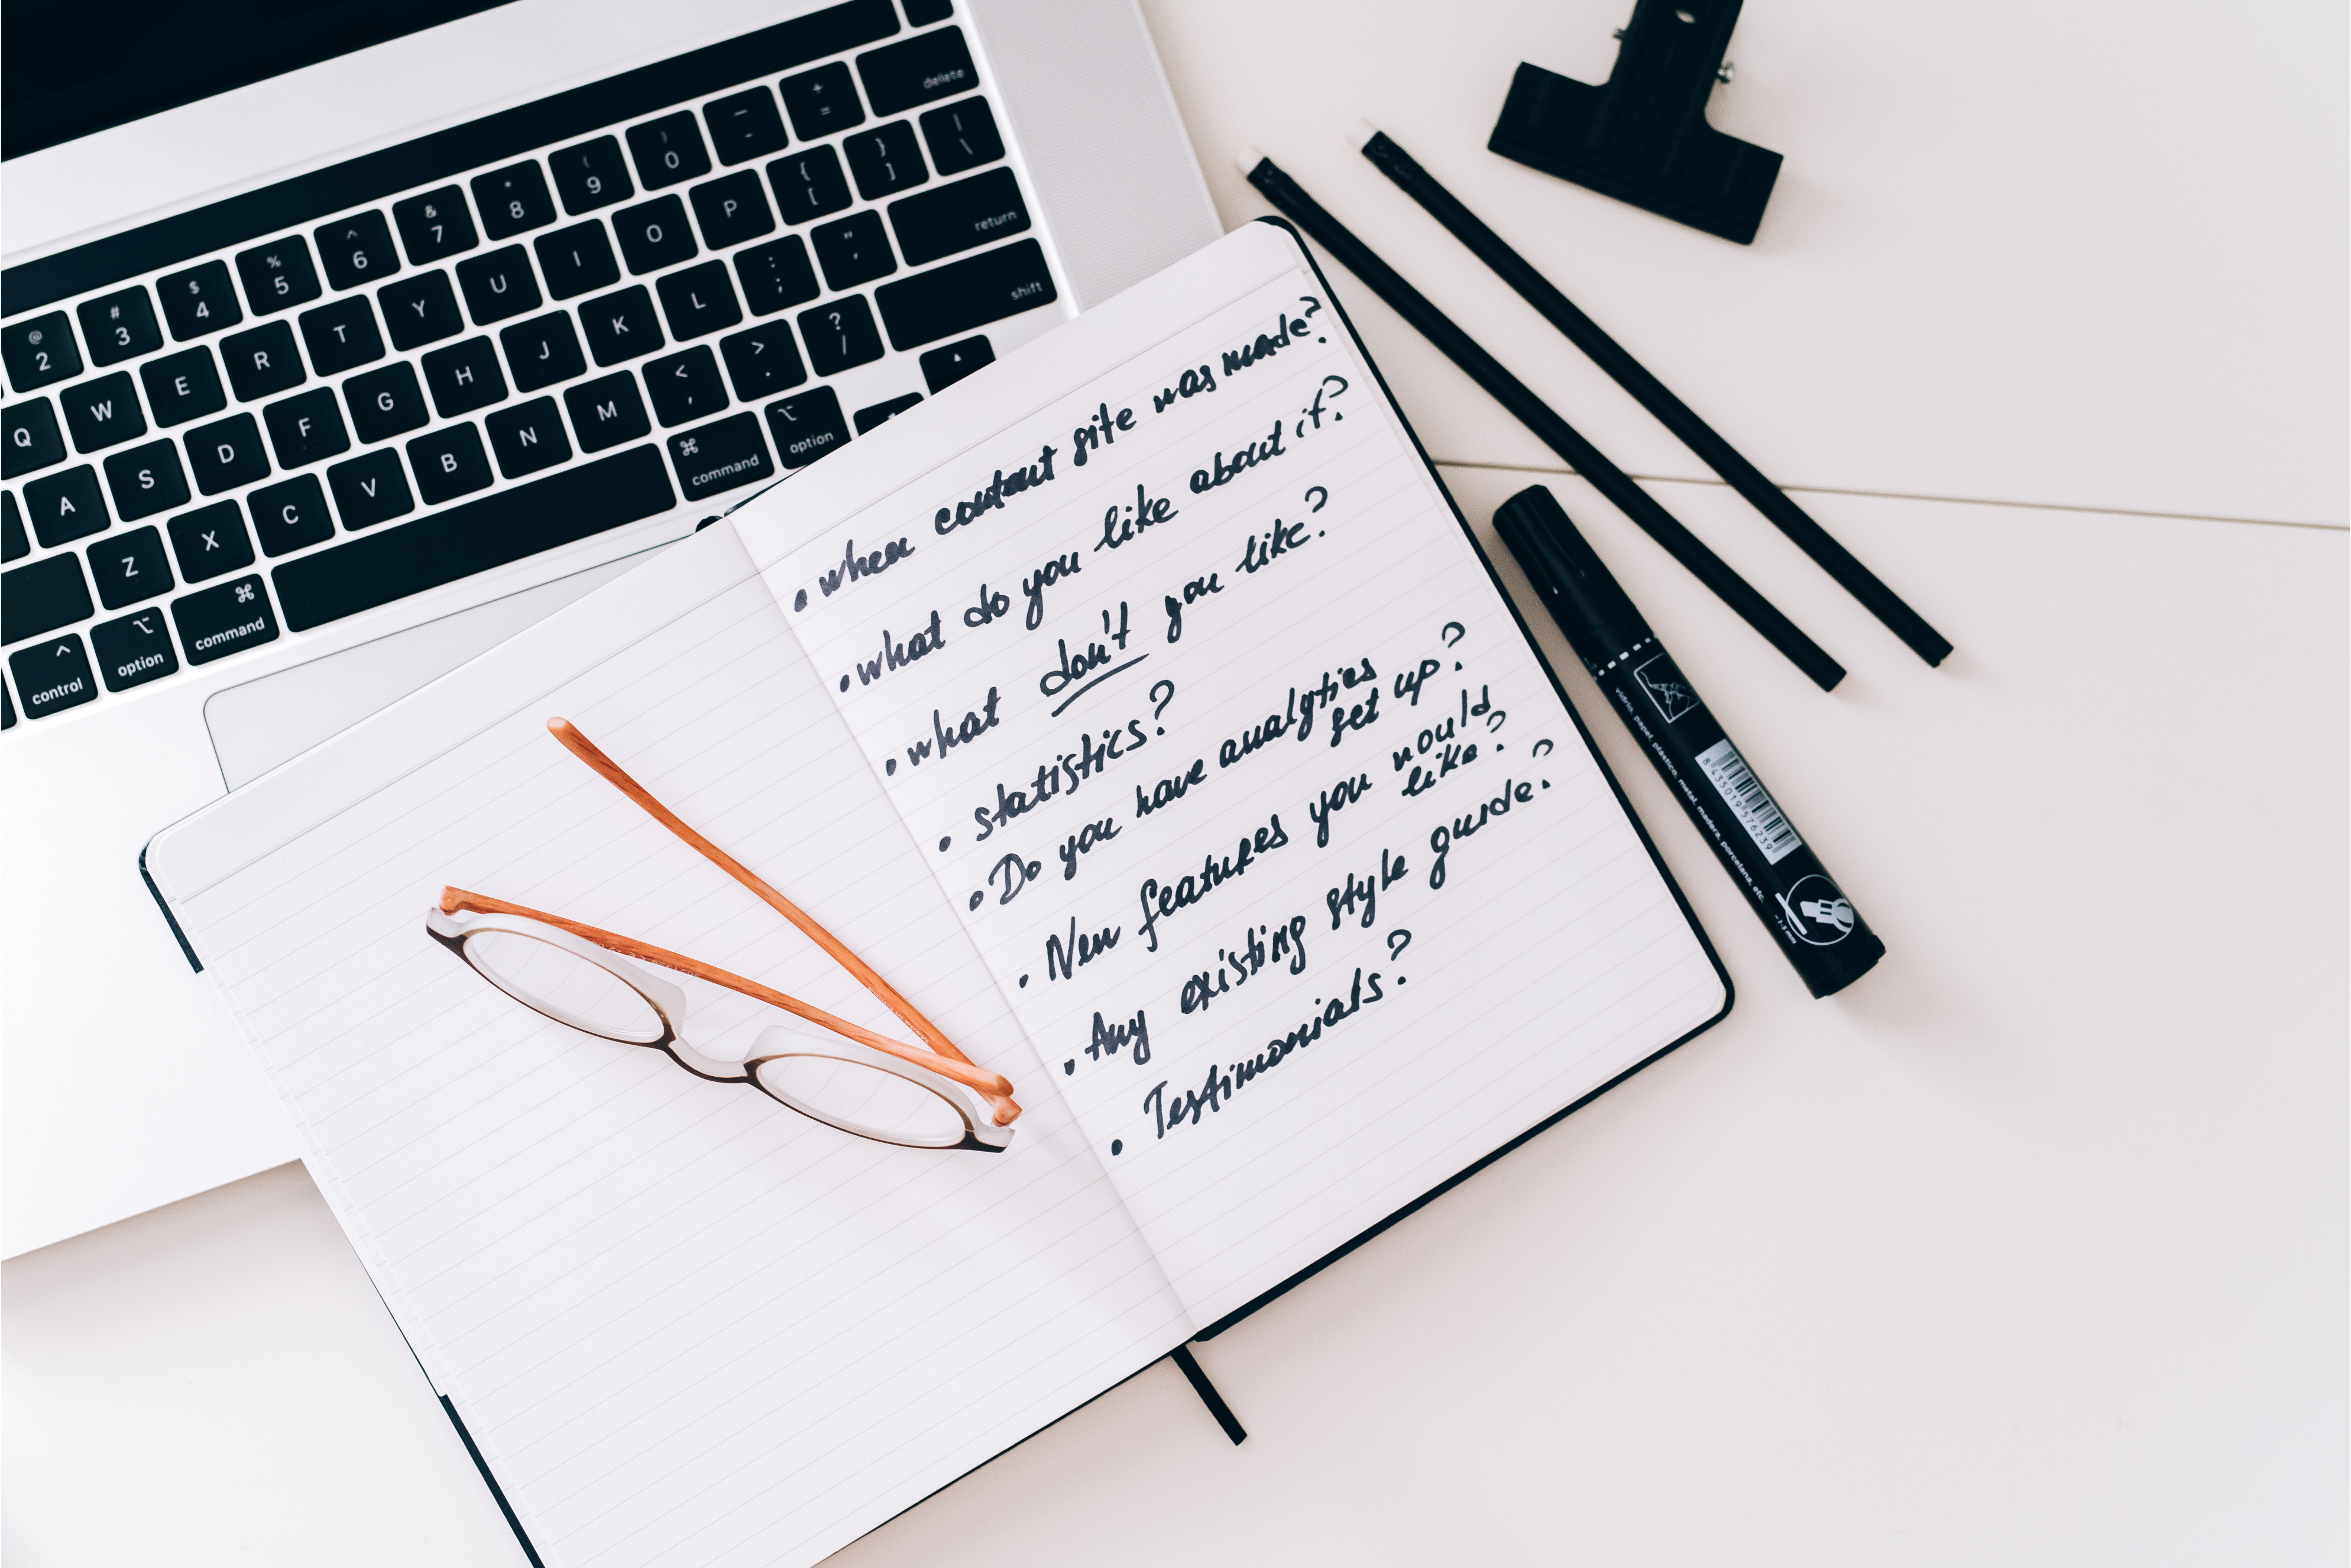 delete
+ =
_ -
) 0
( 9
* 8
& 7
^ 6
% 5
$ 4
# 3
@ 2
Q W E R T Y U I O P { [ } ] | \
A S D F G H J K L : ; " ' return
Z X C V B N M < , > . ? / shift
control option command ⌘ command ⌥ option
• when content site was made?
• what do you like about it?
• what don't you like?
• statistics?
• Do you have analytics
set up?
• New features you would
like?
• Any existing style guide?
• Testimonials?
vidrio, papel, plastico, metal, madera, porcelana, etc.
8 435019 576239